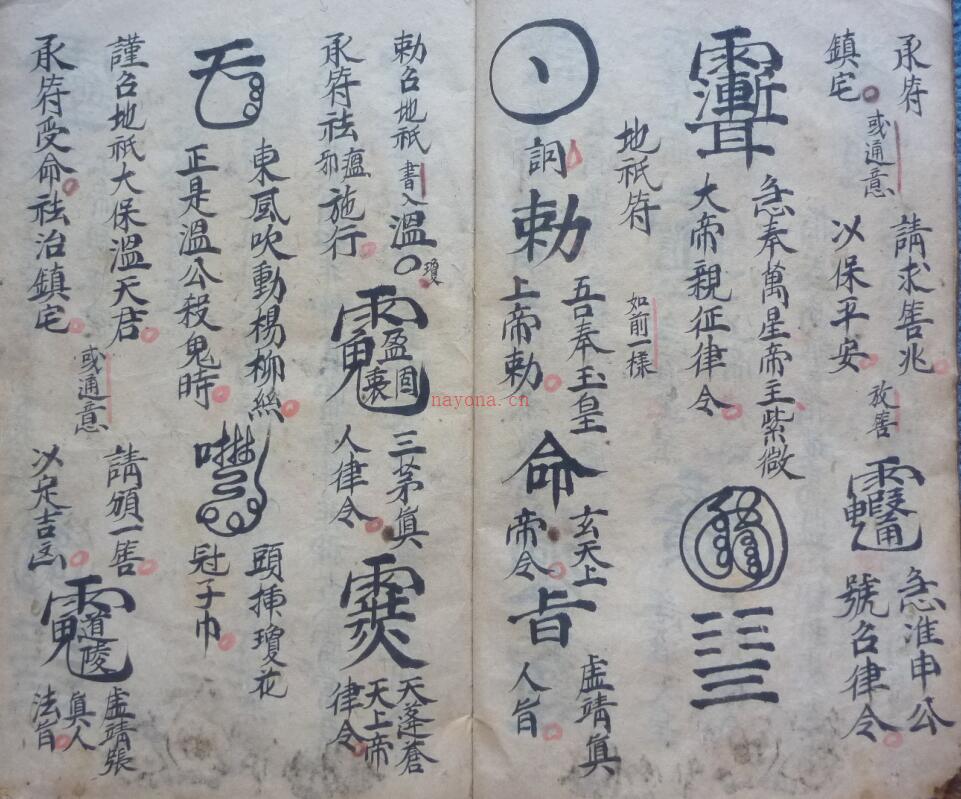 承符
鎮宅
或通意
請求善兆
以保平安
放善
急准申公
號召律令
急奉萬星帝主紫微
大帝親征律令
地祇符
如前一樣
詞
勅
吾奉玉皇
上帝勅
命
玄天上
帝令
旨
虛靖真
人旨
勅召地祇
書入
溫〇
瓊
承符祛瘟
施行
三茅真
人律令
天蓬蒼
天上帝
律令
東風吹動楊柳絲
正是溫公殺鬼時
頭揷瓊花
冠子巾
謹召地祇大保溫天君
承符受命祛治鎮宅
或通意
請頒一筶
以定吉凶
道陵
虛靖張
真人
法旨
nayona.cn